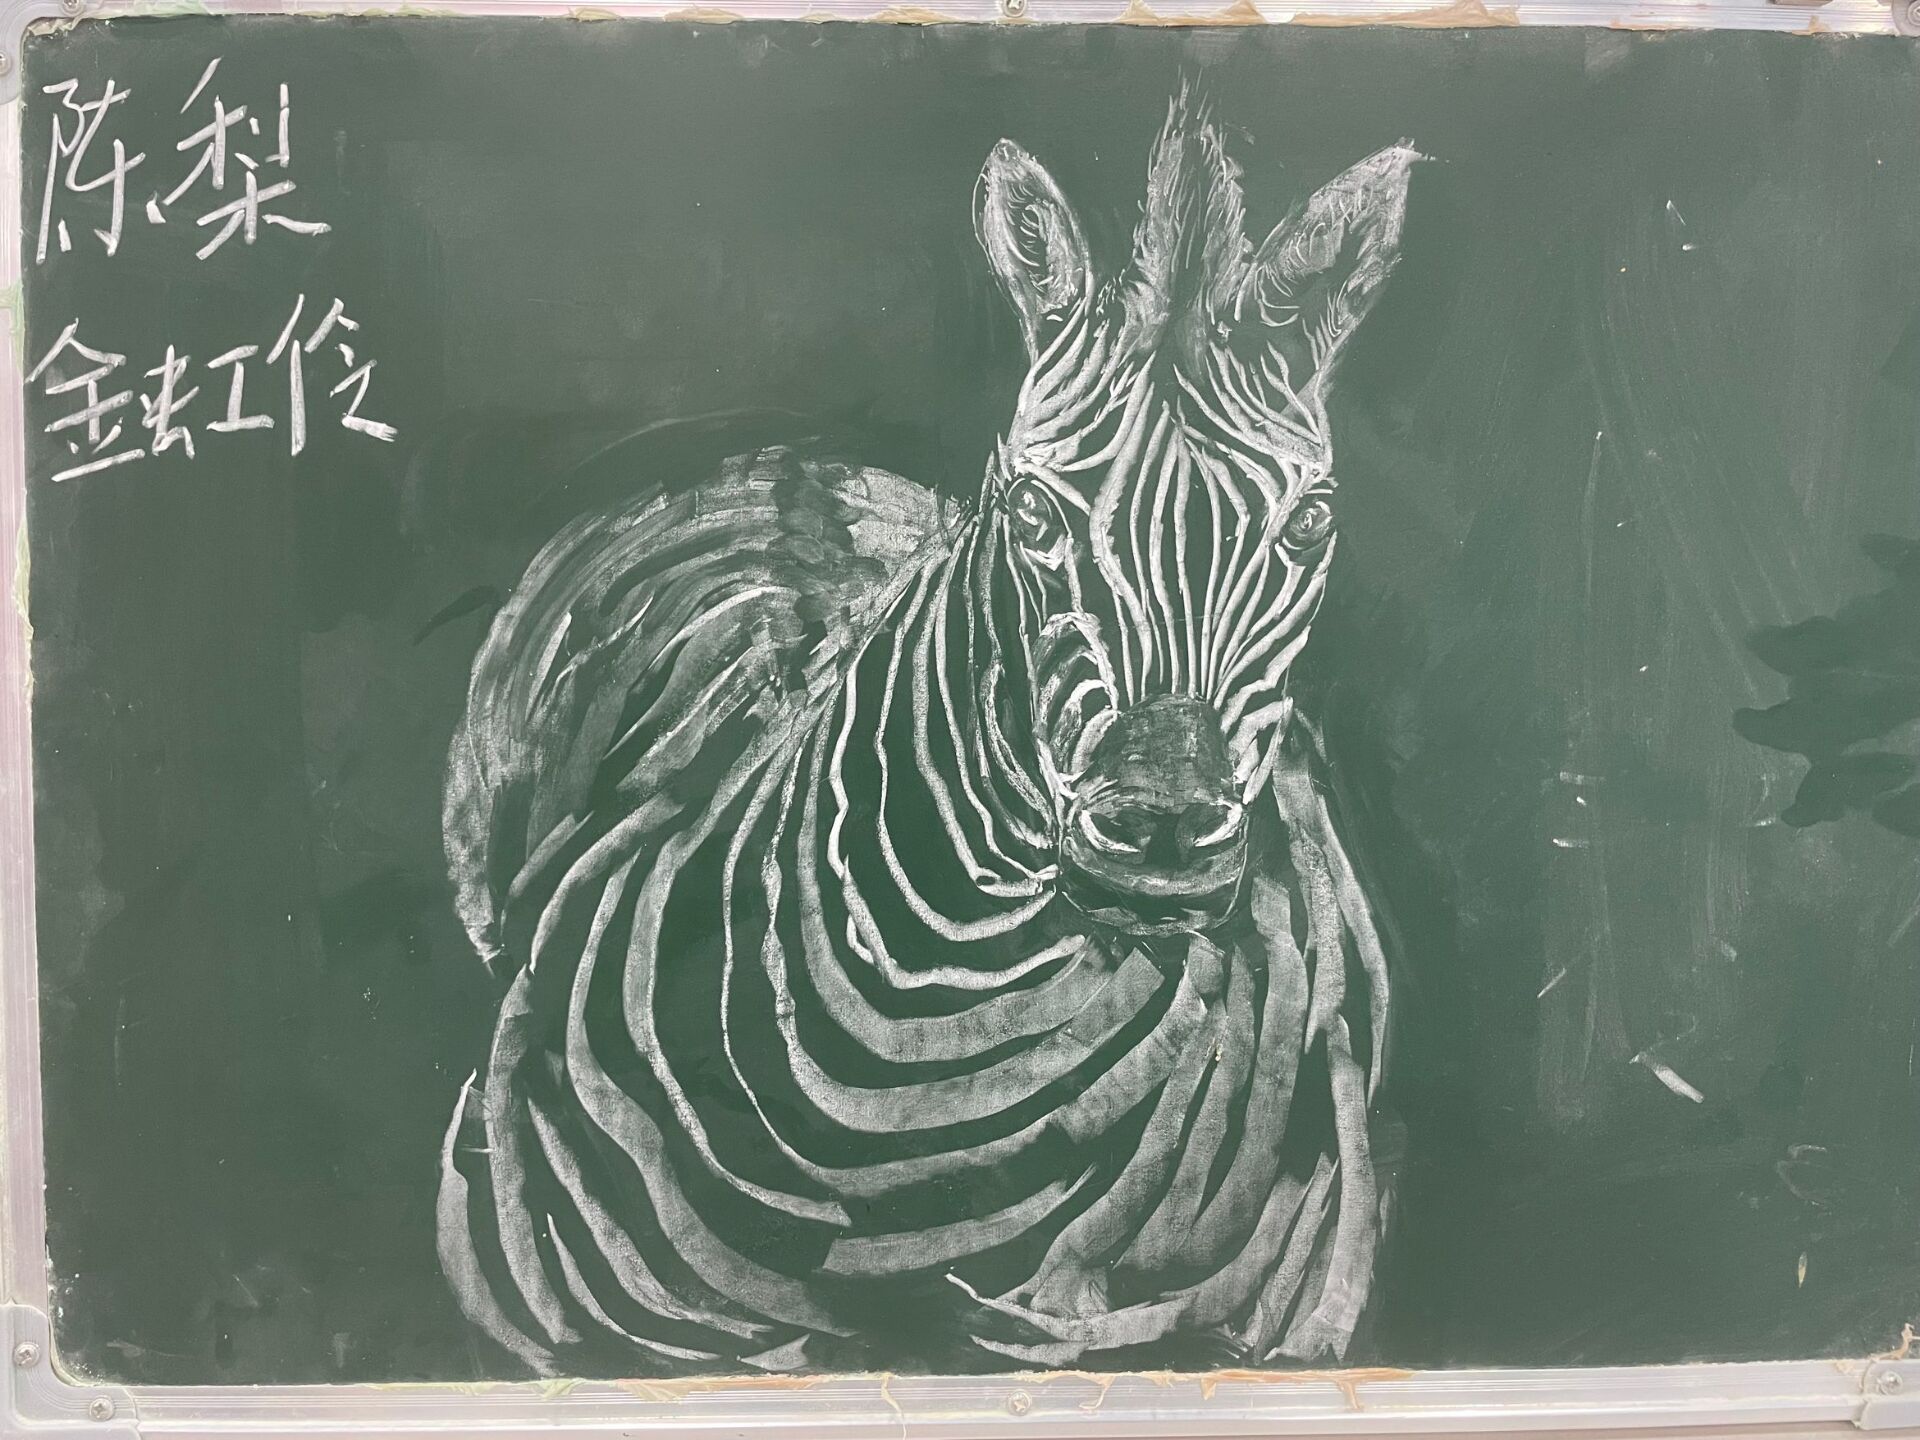 陈梨
金虹伶